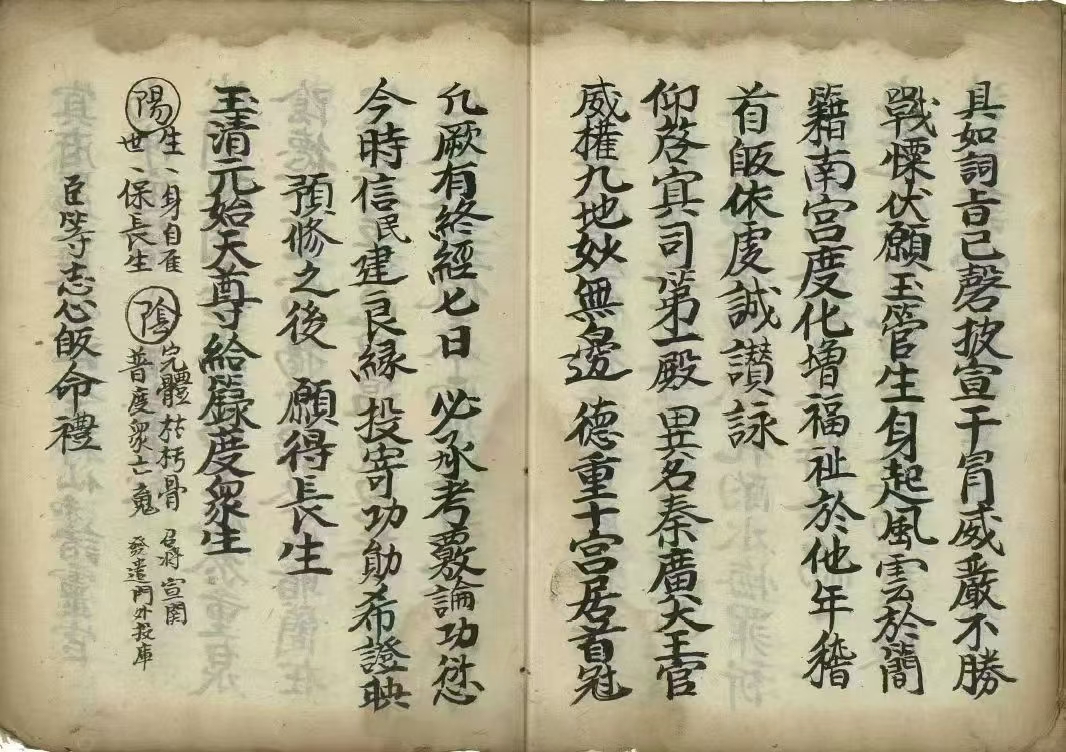 具如詞旨已罄披宣干冒威嚴不勝
戰慄伏願玉管生身起風雲於簡
籍南宮度化增福祉於他年稽
首皈依虔誠讃詠
仰啓寘司第一殿異名秦廣大王官
威權九地妙無邊 德重十宮居首冠
凡厥有終經七日 必承考覈論功愆
今時信民建良緣 投寄功勛希證映
預修之後 願得長生
玉清元始天尊給籙度衆生
陽 生丶身自在
世丶保長生
陰 完體於朽骨
普度衆亡魂
召將宣関
發遣門外投庫
臣等志心皈命禮